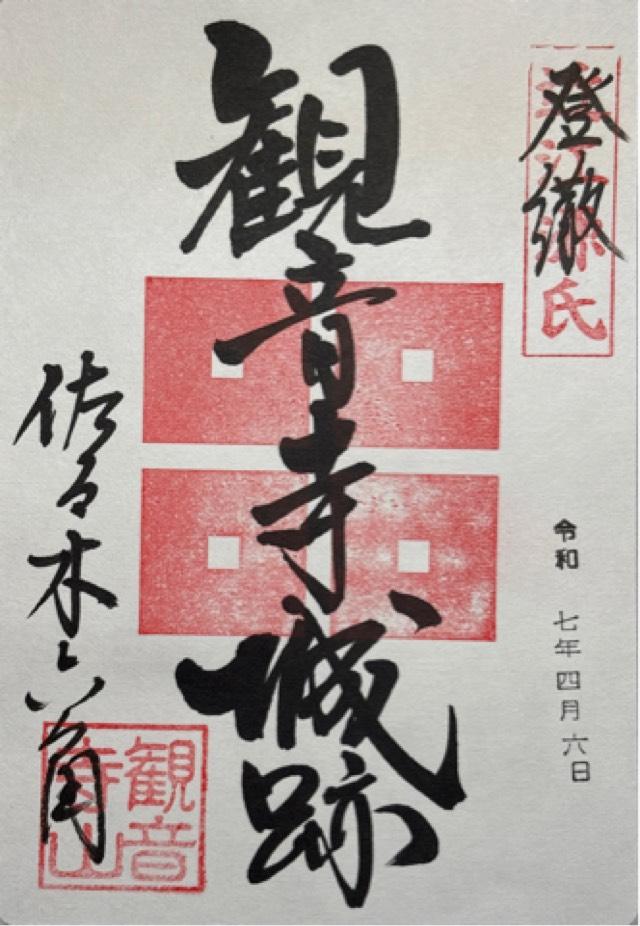 登繖
源氏
令和 七年四月六日
観音寺城跡
佐々木六角
観音
寺山